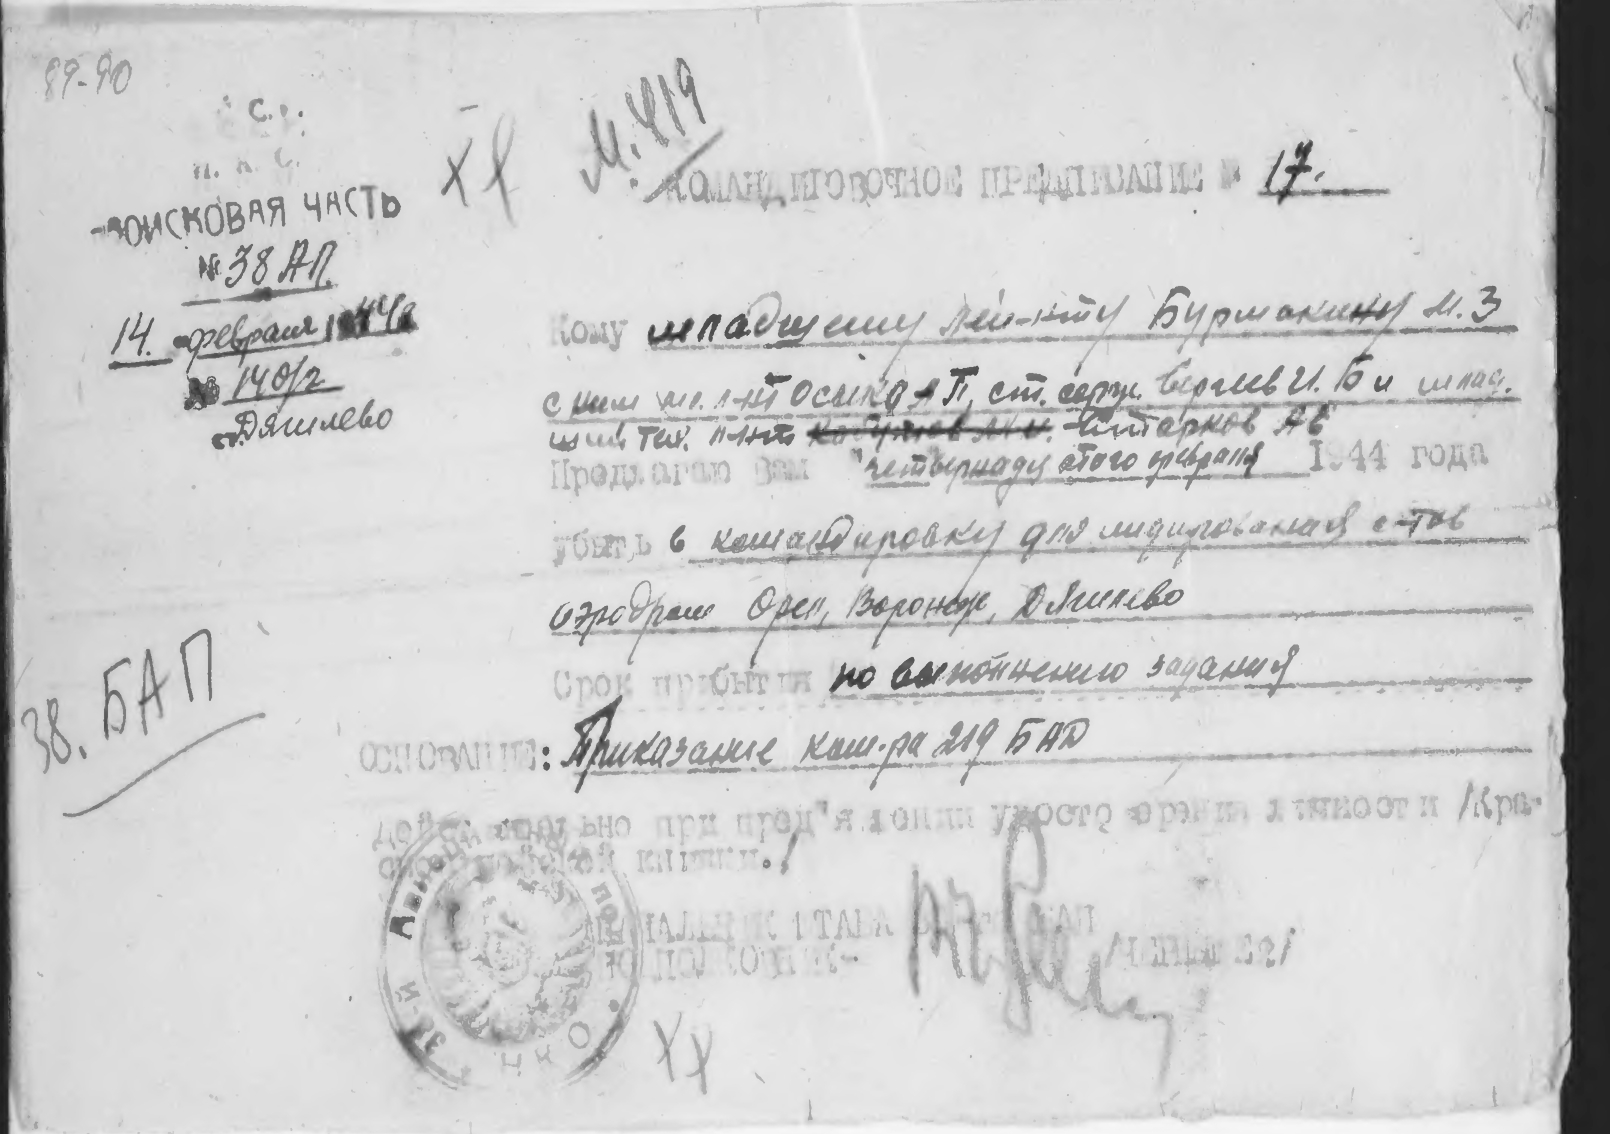 89-90
С.
Н. К. О.
ВОИСКОВАЯ ЧАСТЬ
№ 38 АП.
14. февраля 1944г
№ 140/2
Дягилево
М. 419
КОМАНДИРОВОЧНОЕ ПРЕДПИСАНИЕ № 17.
Кому младшему лей-нту Бурмакину М. З
с ним мл. л-нт Осыка А П, ст. серж. Сергеев И. Б и млад.
ший тех. л-нт Титарков А В
Предлагаю Вам "четвернадцатого февраля 1944 года
убыть в командировку для лидирования с-тов
аэродром Орел, Воронеж, Дягилево
Срок прибытия по выполнению задания
ОСНОВАНИЕ: Приказание ком-ра 219 БАД
Действительно при пред"явлении удостоверения личности /Кра-
сноармейской книжки./
НАЧАЛЬНИК ШТАБА
ПОДПОЛКОВНИК-
38. БАП
Авиационный по
38-й
НКО